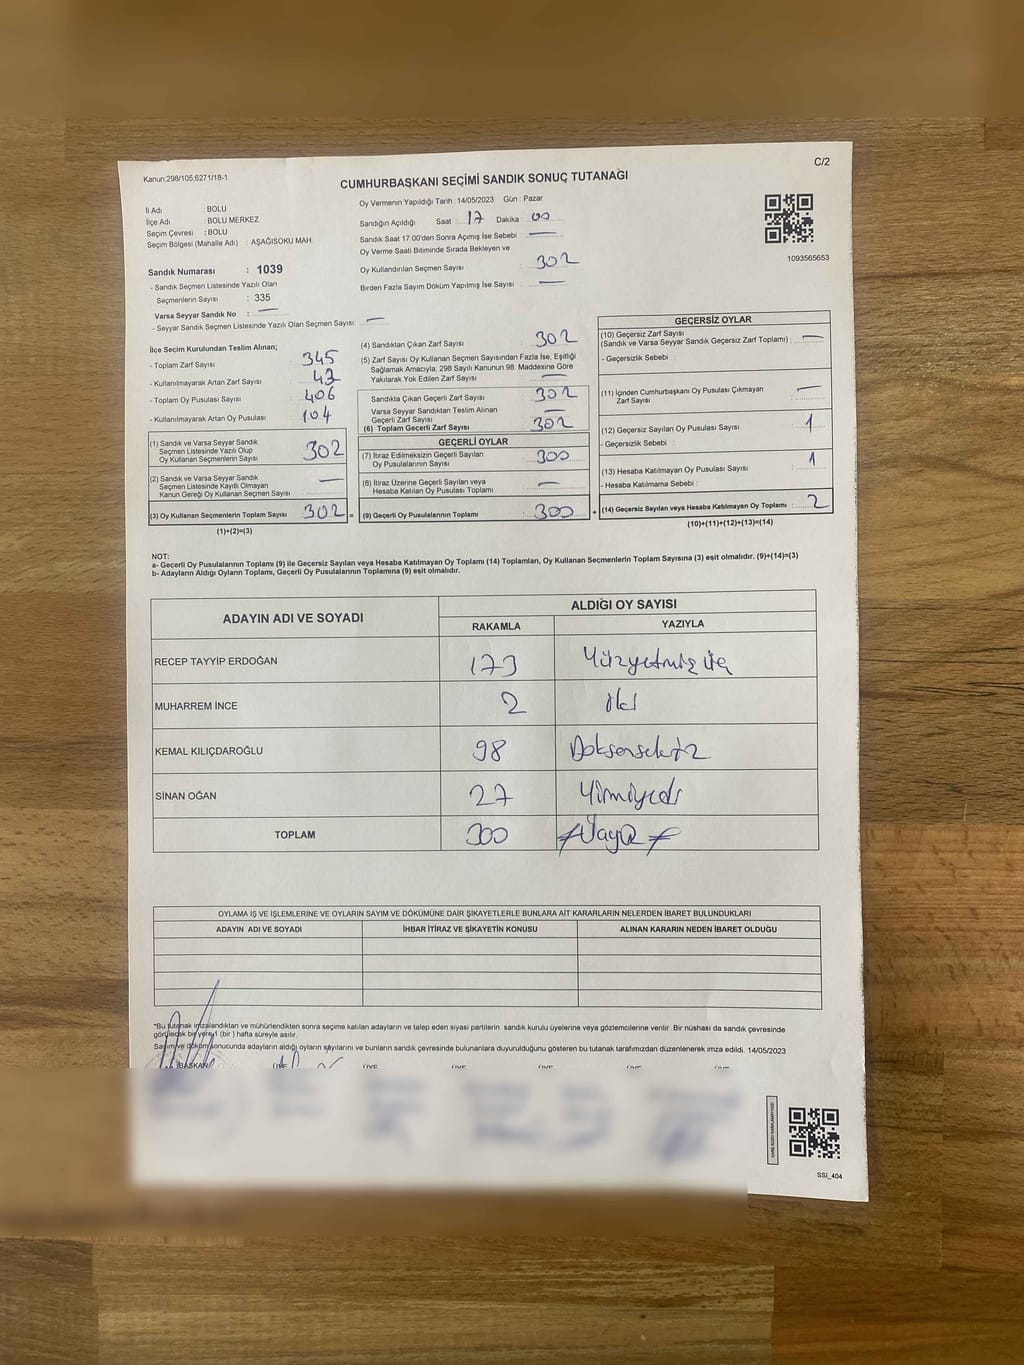 Kanun:298/105,6271/18-1
C/2
CUMHURBAŞKANI SEÇİMİ SANDIK SONUÇ TUTANAĞI
İl Adı : BOLU
İlçe Adı : BOLU MERKEZ
Seçim Çevresi : BOLU
Seçim Bölgesi (Mahalle Adı) : AŞAĞISOKU MAH
Sandık Numarası : 1039
- Sandık Seçmen Listesinde Yazılı Olan
Seçmenlerin Sayısı : 335
Varsa Seyyar Sandık No : —
- Seyyar Sandık Seçmen Listesinde Yazılı Olan Seçmen Sayısı : —
Oy Vermenin Yapıldığı Tarih :14/05/2023 Gün : Pazar
Sandığın Açıldığı Saat 17 Dakika : 00
Sandık Saat 17:00'den Sonra Açımış İse Sebebi : —
Oy Verme Saati Bitiminde Sırada Bekleyen ve
Oy Kullandırılan Seçmen Sayısı : 302
Birden Fazla Sayım Döküm Yapılmış İse Sayısı : —
1093565653
İlçe Seçim Kurulundan Teslim Alınan;
- Toplam Zarf Sayısı : 345
- Kullanılmayarak Artan Zarf Sayısı : 43
- Toplam Oy Pusulası Sayısı : 406
- Kullanılmayarak Artan Oy Pusulası : 104
(1) Sandık ve Varsa Seyyar Sandık
Seçmen Listesinde Yazılı Olup
Oy Kullanan Seçmenlerin Sayısı : 302
(2) Sandık ve Varsa Seyyar Sandık
Seçmen Listesinde Kayıtlı Olmayan
Kanun Gereği Oy Kullanan Seçmen Sayısı : —
(3) Oy Kullanan Seçmenlerin Toplam Sayısı : 302 =
(1)+(2)=(3)
(4) Sandıktan Çıkan Zarf Sayısı : 302
(5) Zarf Sayısı Oy Kullanan Seçmen Sayısından Fazla İse, Eşitliği
Sağlamak Amacıyla; 298 Sayılı Kanunun 98. Maddesine Göre
Yakılarak Yok Edilen Zarf Sayısı : —
Sandıkta Çıkan Geçerli Zarf Sayısı : 302
Varsa Seyyar Sandıktan Teslim Alınan
Geçerli Zarf Sayısı : —
(6) Toplam Geçerli Zarf Sayısı : 302
GEÇERLİ OYLAR
(7) İtiraz Edilmeksizin Geçerli Sayılan
Oy Pusulalarının Sayısı : 300
(8) İtiraz Üzerine Geçerli Sayılan veya
Hesaba Katılan Oy Pusulası Toplamı : —
(9) Geçerli Oy Pusulalarının Toplamı : 300 +
GEÇERSİZ OYLAR
(10) Geçersiz Zarf Sayısı
(Sandık ve Varsa Seyyar Sandık Geçersiz Zarf Toplamı) : —
- Geçersizlik Sebebi :
(11) İçinden Cumhurbaşkanı Oy Pusulası Çıkmayan
Zarf Sayısı : —
(12) Geçersiz Sayılan Oy Pusulası Sayısı : 1
- Geçersizlik Sebebi :
(13) Hesaba Katılmayan Oy Pusulası Sayısı : 1
- Hesaba Katılmama Sebebi :
(14) Geçersiz Sayılan veya Hesaba Katılmayan Oy Toplamı : 2
(10)+(11)+(12)+(13)=(14)
NOT:
a- Geçerli Oy Pusulalarının Toplamı (9) ile Geçersiz Sayılan veya Hesaba Katılmayan Oy Toplamı (14) Toplamları, Oy Kullanan Seçmenlerin Toplam Sayısına (3) eşit olmalıdır. (9)+(14)=(3)
b- Adayların Aldığı Oyların Toplamı, Geçerli Oy Pusulalarının Toplamına (9) eşit olmalıdır.
ADAYIN ADI VE SOYADI ALDIĞI OY SAYISI
RAKAMLA YAZIYLA
RECEP TAYYİP ERDOĞAN 173 Yüzyetmişüç
MUHARREM İNCE 2 iki
KEMAL KILIÇDAROĞLU 98 Doksansekiz
SİNAN OĞAN 27 Yirmiyedi
TOPLAM 300 #Üçyüz#
OYLAMA İŞ VE İŞLEMLERİNE VE OYLARIN SAYIM VE DÖKÜMÜNE DAİR ŞİKAYETLERLE BUNLARA AİT KARARLARIN NELERDEN İBARET BULUNDUKLARI
ADAYIN ADI VE SOYADI İHBAR İTİRAZ VE ŞİKAYETİN KONUSU ALINAN KARARIN NEDEN İBARET OLDUĞU
"Bu tutanak imzalandıktan ve mühürlendikten sonra seçime katılan adayların ve talep eden siyasi partilerin sandık kurulu üyelerine veya gözlemcilerine verilir. Bir nüshası da sandık çevresinde
görülecek bir yere 1 (bir ) hafta süreyle asılır.
Sayım ve döküm sonucunda adayların aldığı oyların sayılarını ve bunların sandık çevresinde bulunanlara duyurulduğunu gösteren bu tutanak tarafımızdan düzenlenerek imza edildi. 14/05/2023
BAŞKAN ÜYE ÜYE ÜYE ÜYE ÜYE ÜYE
SSI_404